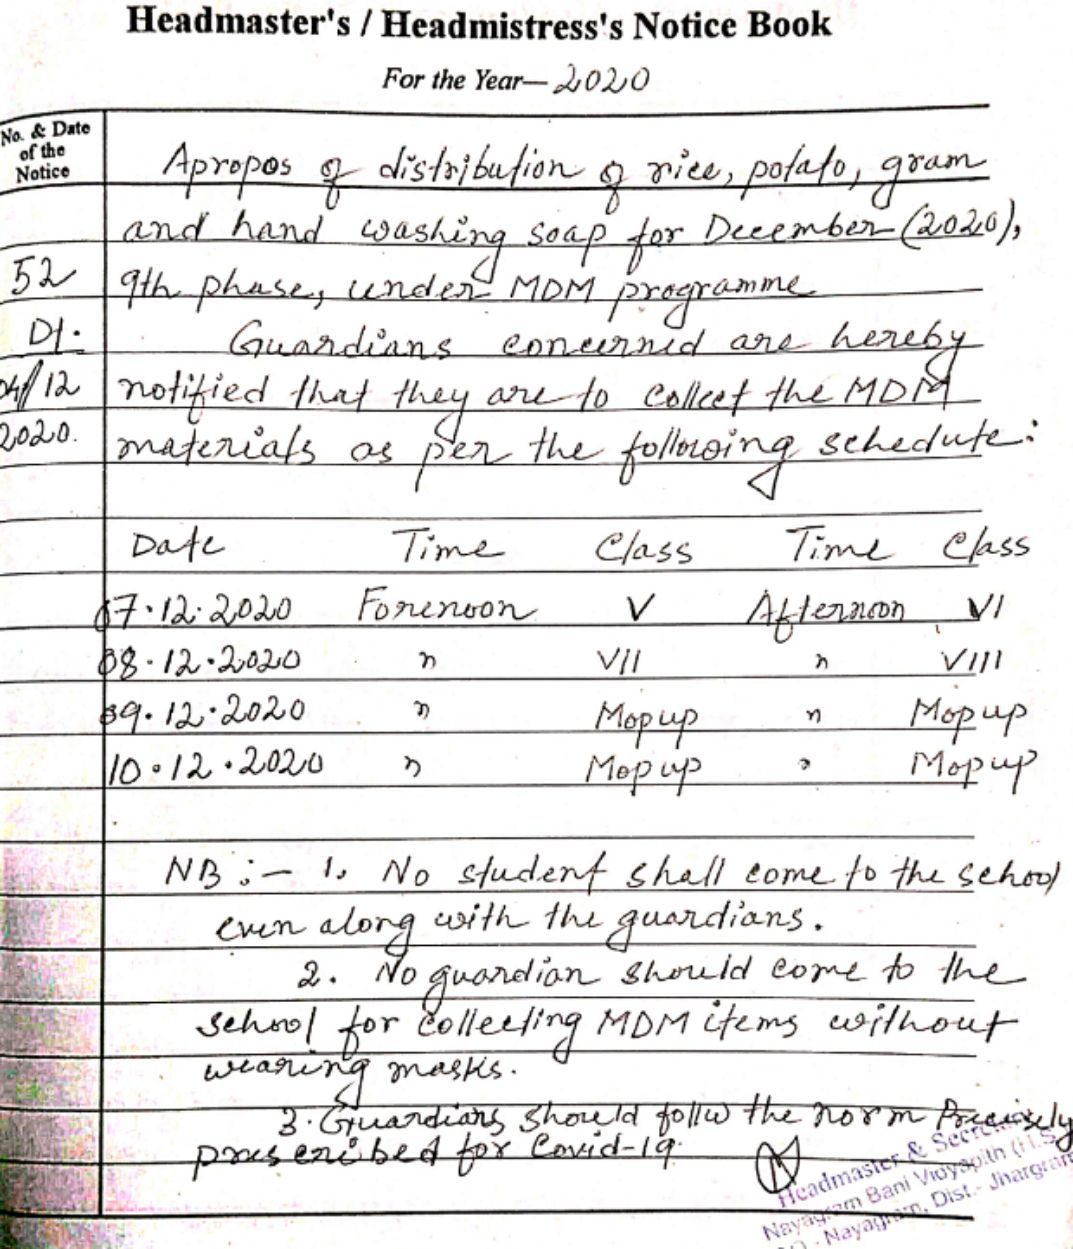 Headmaster's / Headmistress's Notice Book
For the Year— 2020
No. & Date
of the
Notice
Apropos of distribution of rice, potato, gram
and hand washing soap for December (2020),
52
9th phase, under MDM programme
Dt.
Guardians concerned are hereby
04/12
notified that they are to collect the MDM
2020.
materials as per the following schedule:
Date Time Class Time Class
07.12.2020 Forenoon V Afternoon VI
08.12.2020 " VII " VIII
09.12.2020 " Mop up " Mop up
10.12.2020 " Mop up " Mop up
NB :- 1. No student shall come to the school
even along with the guardians.
2. No guardian should come to the
school for collecting MDM items without
wearing masks.
3. Guardians should follw the norm Precisely
prescribed for Covid-19.
Headmaster & Secre
Nayagram Bani Vidyapith (H.S.
Nayagram, Dist.- Jhargram